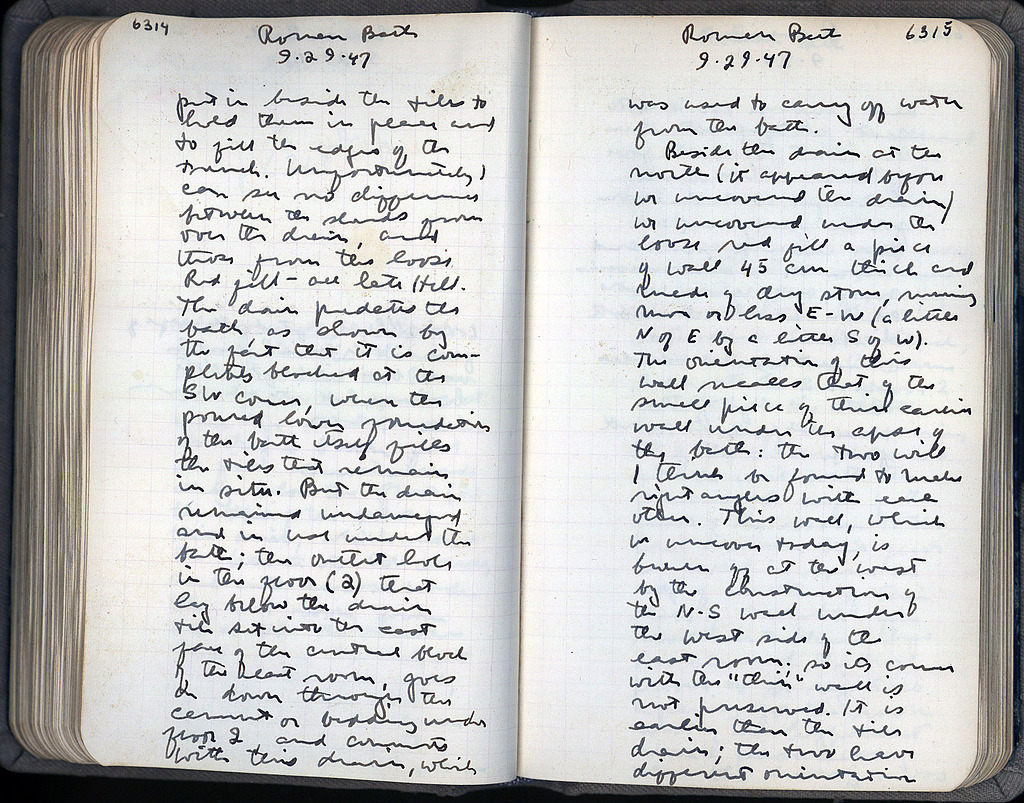 6314
Roman Bath
9.29.47
put in beside the tiles to
hold them in place and
to fill the edges of the
trench. Unfortunately I
can see no difference
between the sherds from
over the drain, and
those from the loose
Red fill - all late Hell.
The drain predates the
bath as shown by
the fact that it is com-
pletely blocked at the
SW corner, where the
poured lower foundation
of the bath itself fills
the tiles that remain
in situ. But the drain
remained undamaged
and in use under the
bath; the outlet hole
in the floor (2) that
lay below the drain
tile set into the east
face of the central block
of the heat room, goes
down through the
cement or bedding under
floor 2 and connects
with this drain, which
6315
Roman Bath
9.29.47
was used to carry off water
from the bath.
Beside the drain at the
north (it appeared before
we uncovered the drain)
we uncovered under the
loose red fill a piece
of wall 45 cm thick and
made of dry stone, running
more or less E-W (a little
N of E by a little S of W).
The orientation of this
wall recalls that of the
small piece of thin earlier
wall under the apse of
the bath: the two will
I think be found to make
right angles with each
other. This wall, which
we uncover today, is
broken off at the west
by the construction of
the N-S wall under
the west side of the
east room; so its corner
with the "thin" wall is
not preserved. It is
earlier than the tile
drain; the two have
different orientation